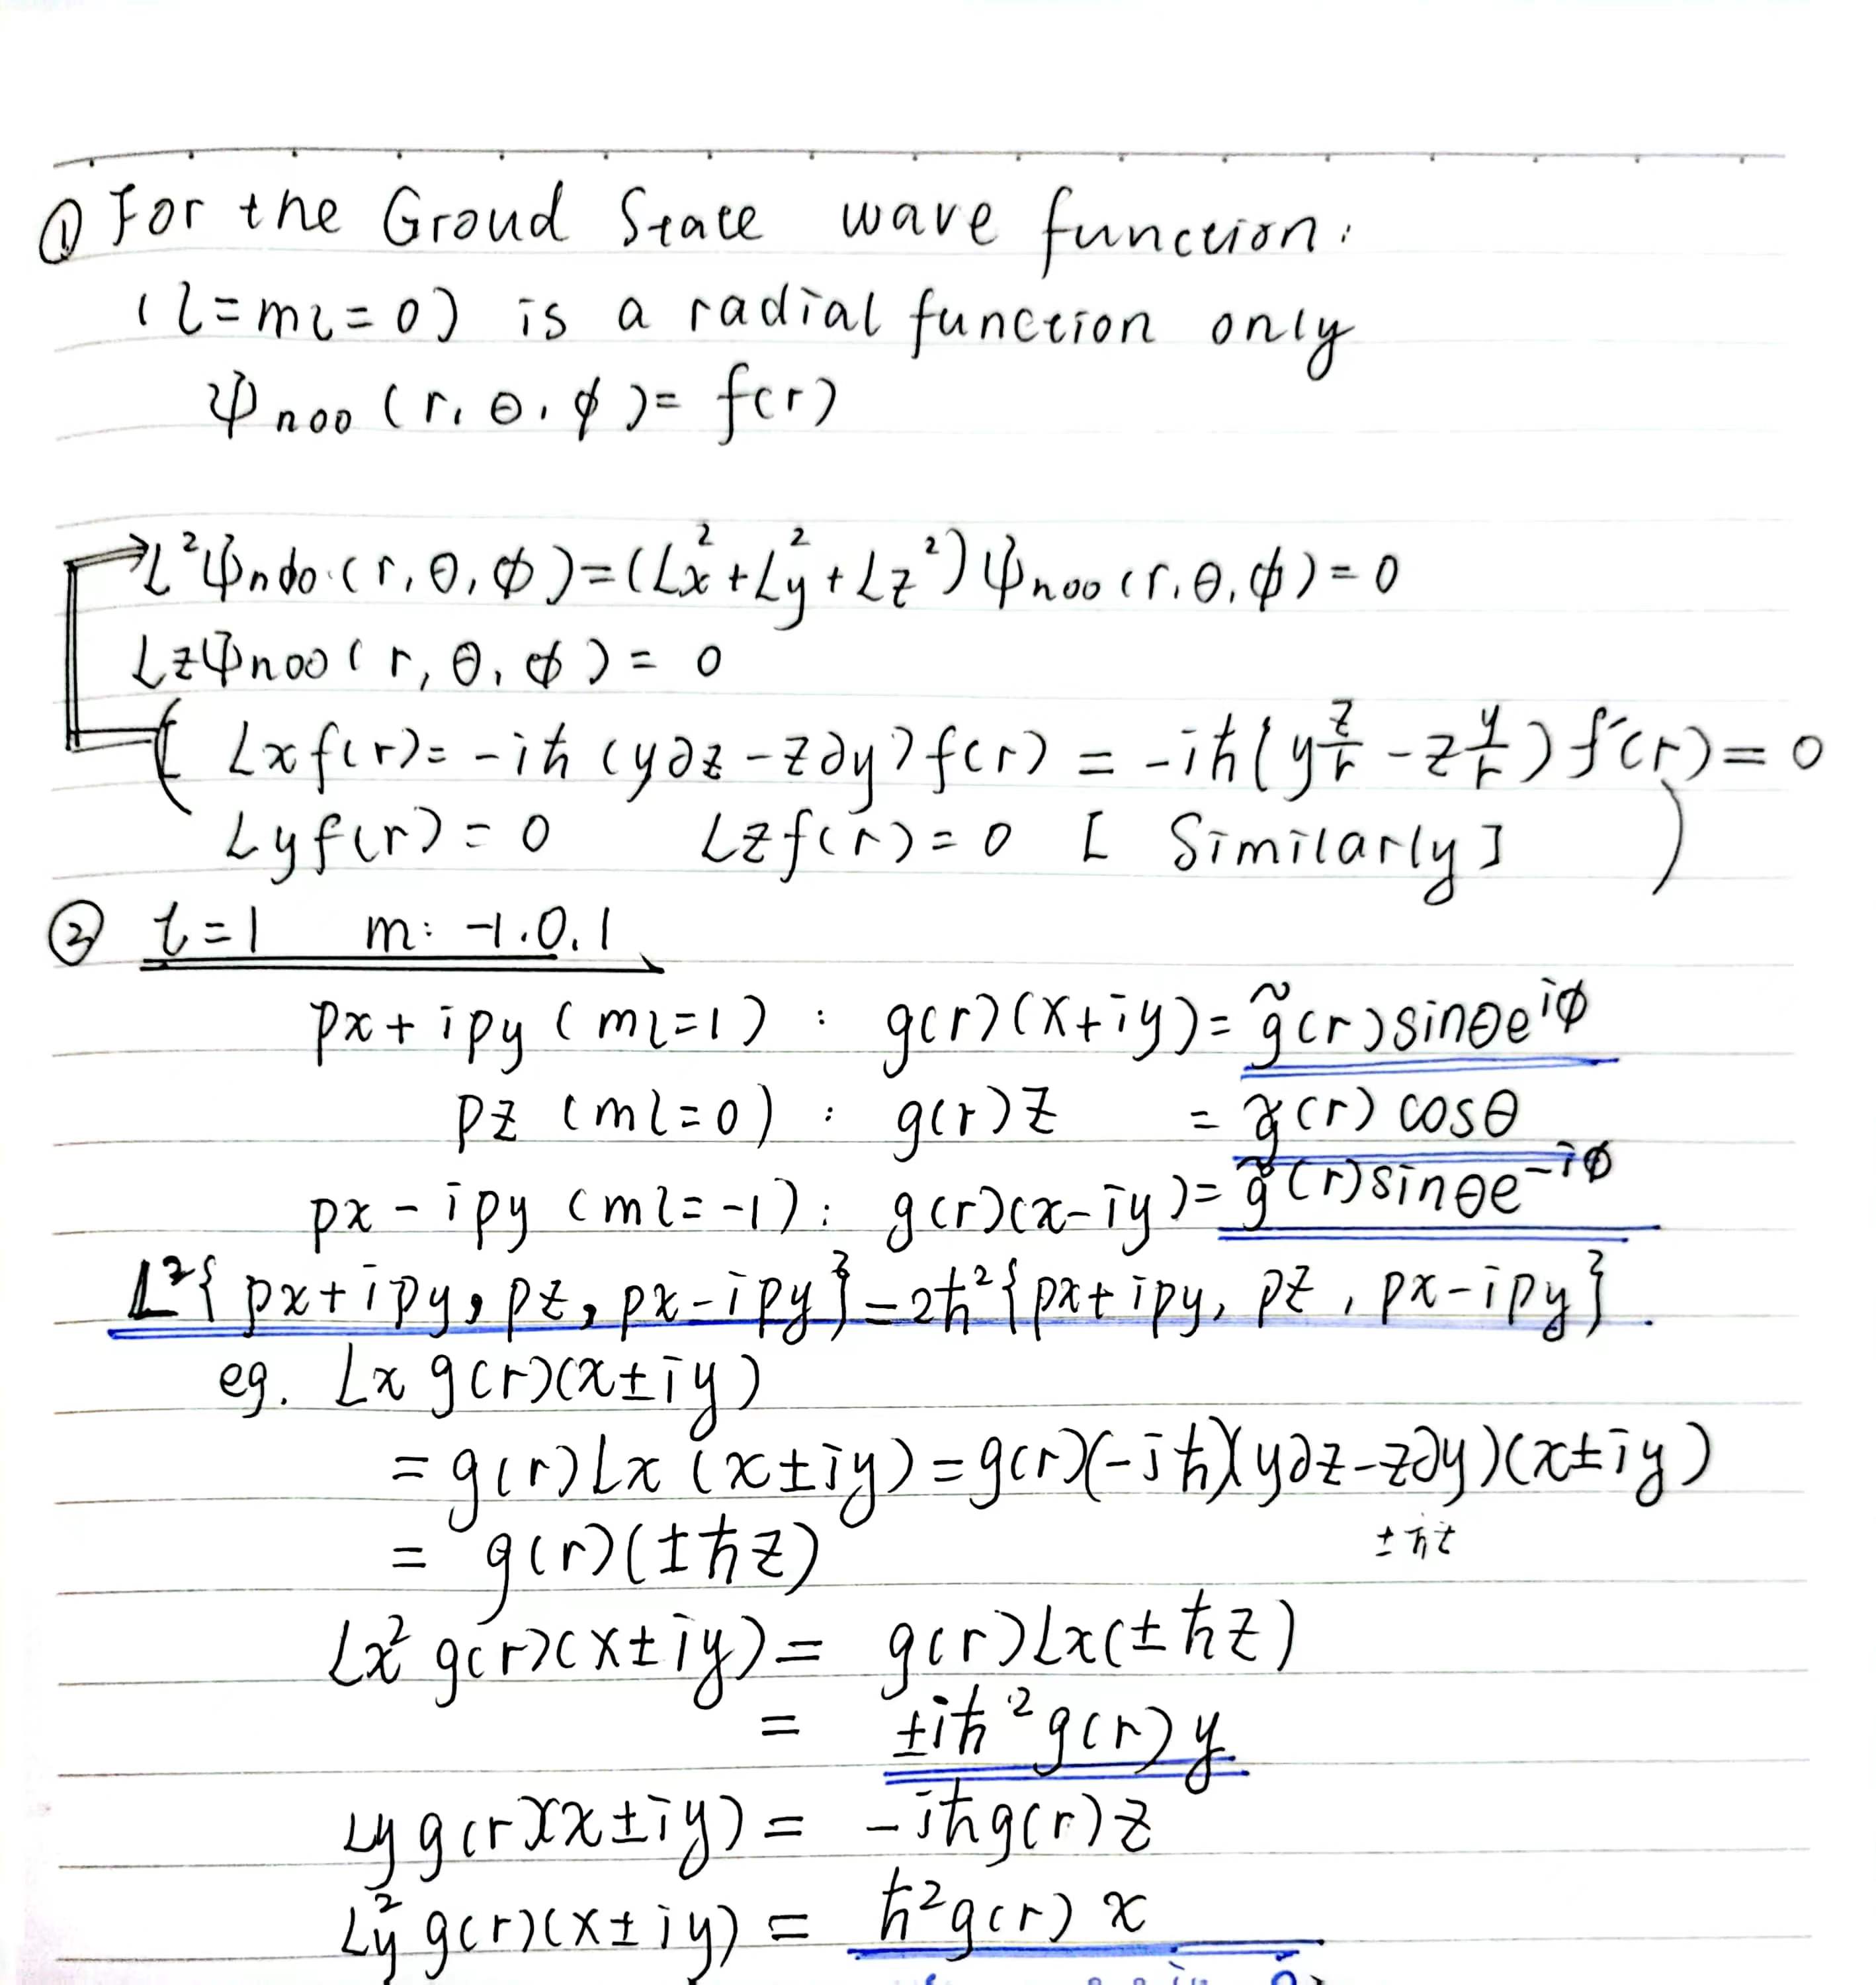 ① For the Groud State wave function.
(l=ml=0) is a radial function only
ψn00 (r, θ, φ)= f(r)
L²ψn00 (r, θ, φ)=(Lx²+Ly²+Lz²)ψn00(r, θ, φ)=0
Lzψn00(r, θ, φ)= 0
( Lxf(r)= -iħ(y∂z-z∂y)f(r) = -iħ(y z/r - z y/r) f'(r)=0
Lyf(r)=0 Lzf(r)=0 [ Similarly] )
② l=1 m: -1.0.1
px+ipy (ml=1) : g(r)(x+iy)= g̃(r)sinθe^{iφ}
pz (ml=0) : g(r)z = g̃(r) cosθ
px-ipy (ml=-1): g(r)(x-iy)= g̃(r)sinθe^{-iφ}
L²{ px+ipy, pz, px-ipy}=2ħ²{px+ipy, pz, px-ipy}.
eg. Lx g(r)(x±iy)
= g(r)Lx (x±iy)=g(r)(-iħ)(y∂z-z∂y)(x±iy)
±ħz
= g(r)(±ħz)
Lx² g(r)(x±iy)= g(r)Lx(±ħz)
= ±iħ²g(r)y
Ly g(r)(x±iy)= -iħg(r)z
Ly² g(r)(x±iy)= ħ²g(r) x